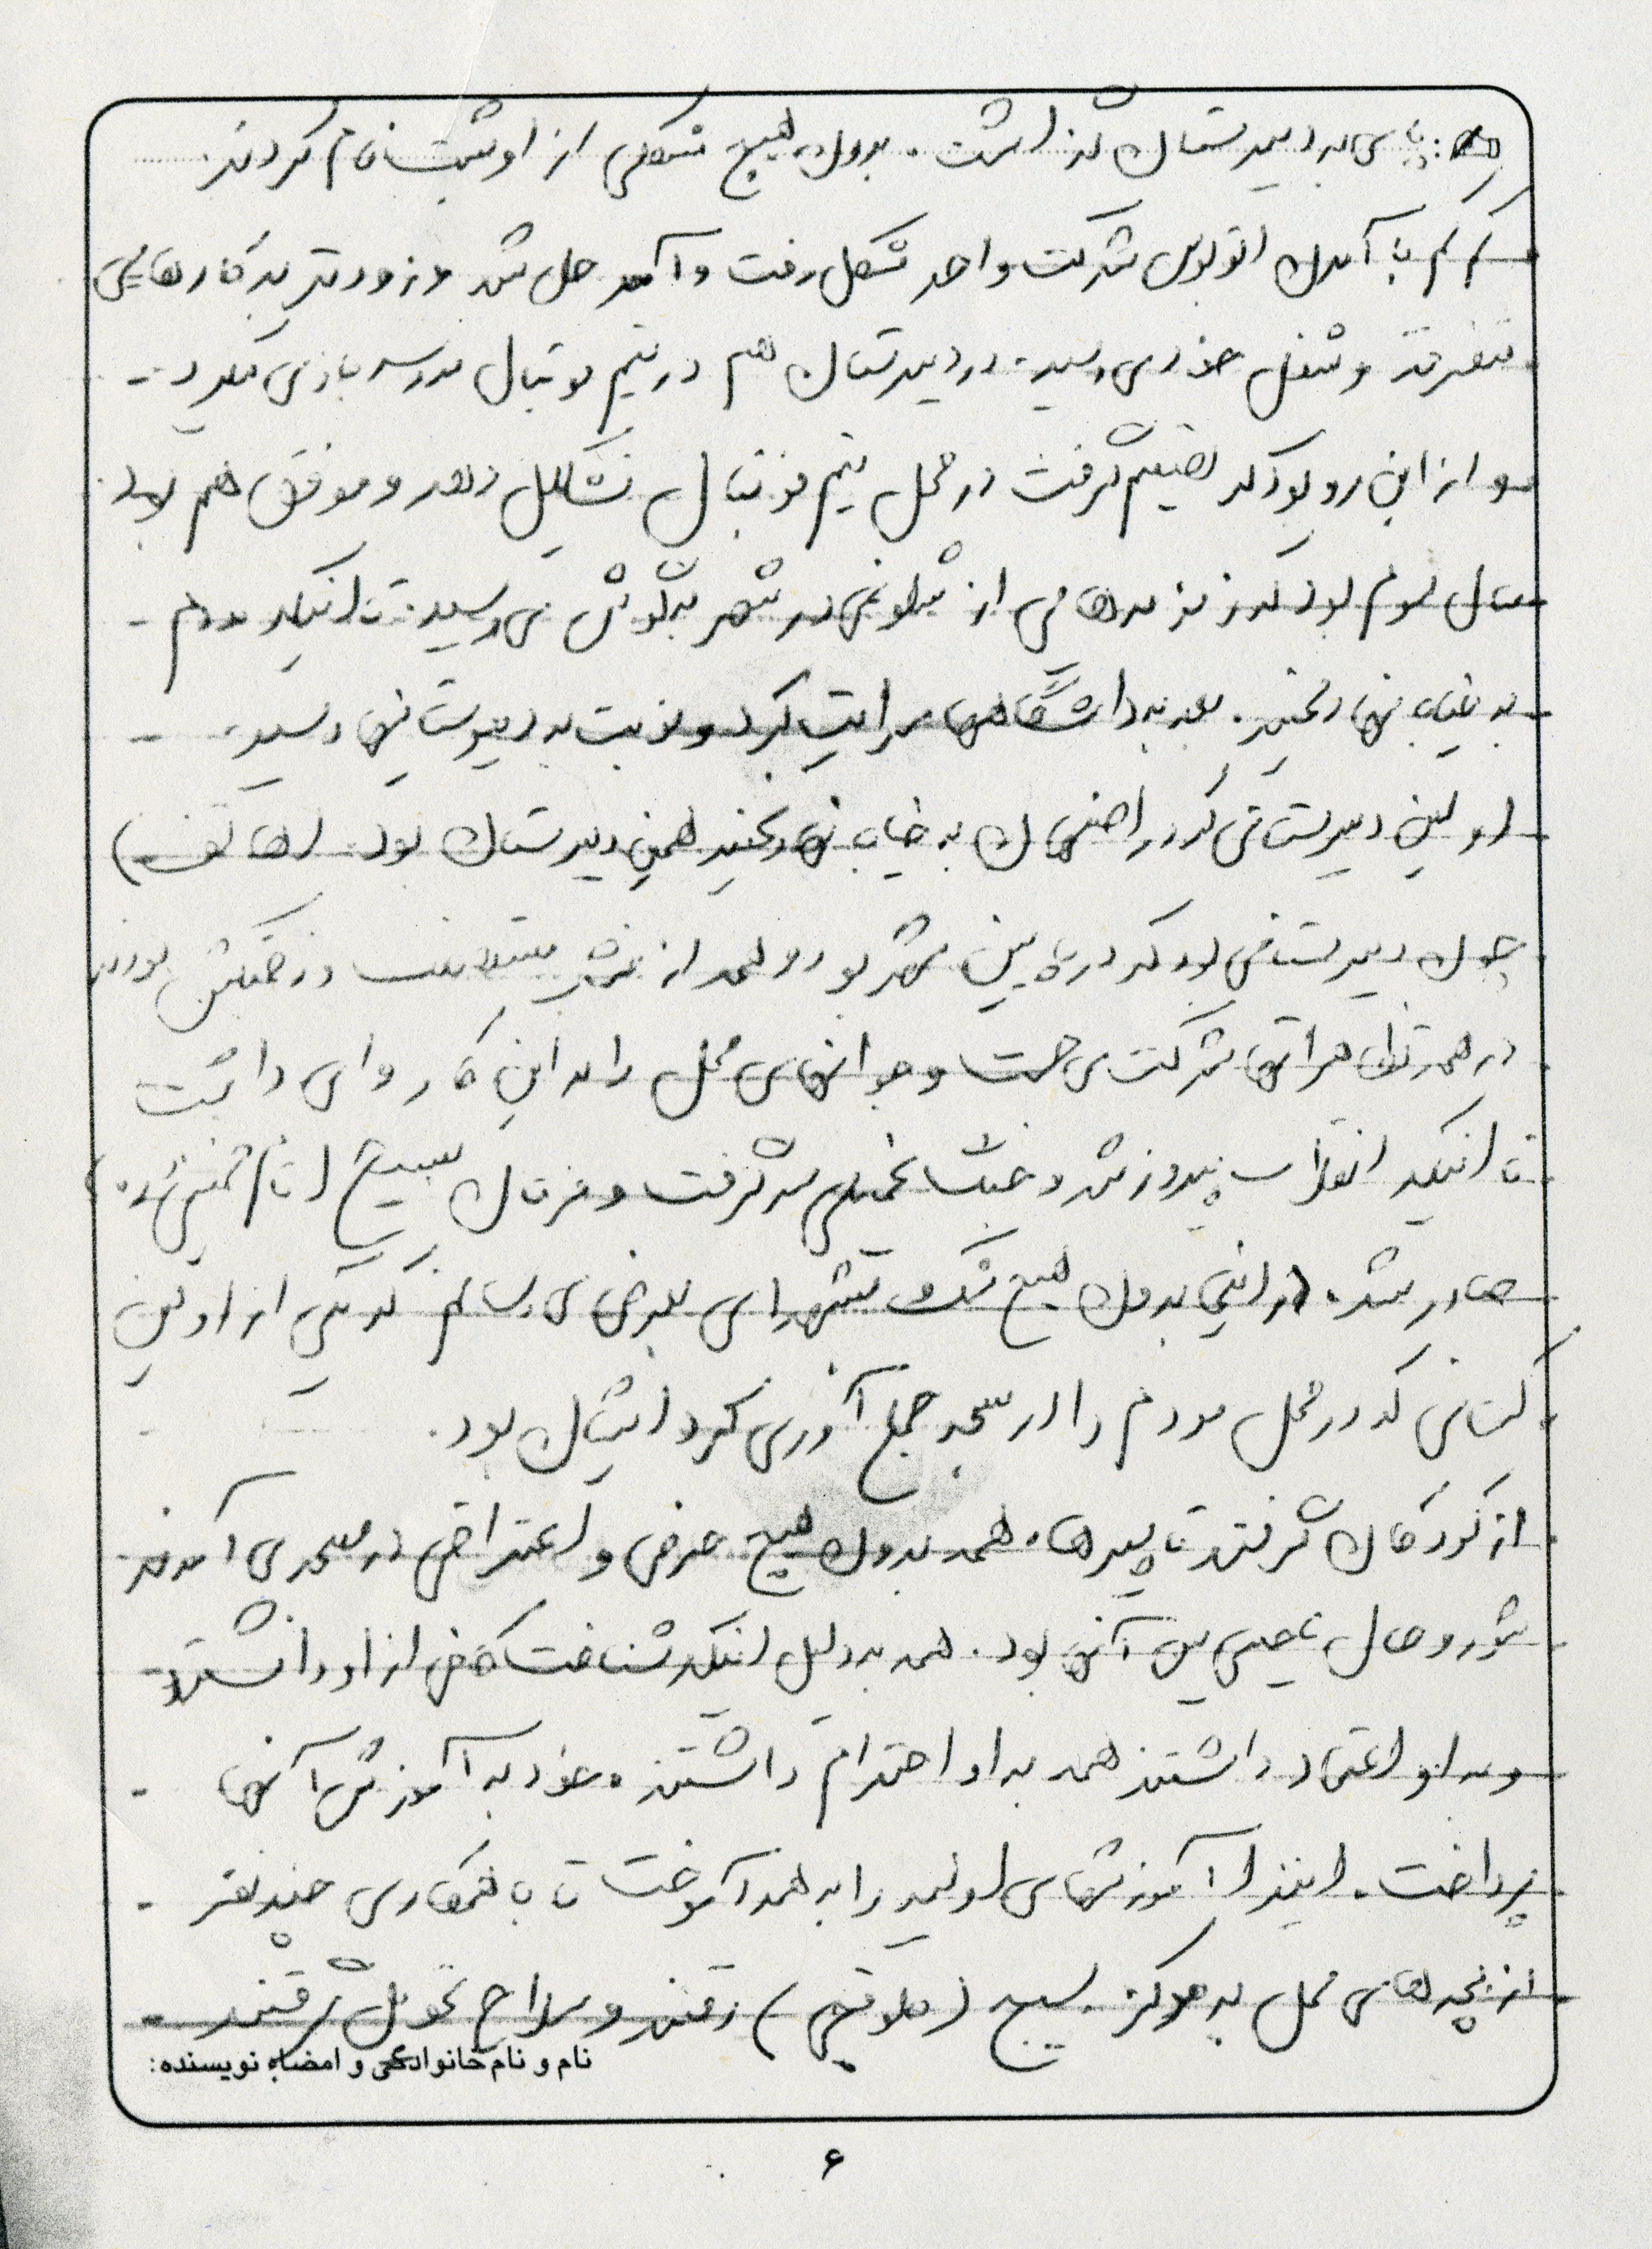 پای به دبیرستان گذاشت. بدون هیچ مشکلی از او ثبت نام کردند.
کم کم با آمدن اتوبوس شرکت واحد مشکل رفت و آمد حل شد و زودتر به کارهایی
متفرقه و شغل خود می رسید. در دبیرستان هم در تیم فوتبال مدرسه بازی میکرد
و از این رو بود که تصمیم گرفت در محل تیم فوتبال تشکیل دهد و موفق هم بود
سال سوم بود که زمزمه هایی از شلوغی در شهر بگوش می رسید. تا اینکه مردم
به خیابانها ریختند. بعد به دانشگاهها سرایت کرد و نوبت به دبیرستانها رسید.
اولین دبیرستانی که در اصفهان به خیابانها ریختند همین دبیرستان بود. (هاتف)
چون دبیرستانی بود که در پایین شهر بود و همه از قشر مستضعف و زحمتکش بودند
در همه تظاهراتها شرکت می جست و جوانهای محل را به این کار وا می داشت
تا اینکه انقلاب پیروز شد و جنگ تحمیلی سر گرفت و فرمان بسیج (امام خمینی ره)
صادر شد. در اینجا بدون هیچ شک و تشهدای بعرض می رسانم که یکی از اولین
کسانی که در محل مردم را در مسجد جمع آوری کرد ایشان بود.
از کودکان گرفته تا پیرها. همه بدون هیچ حرفی و اعتراضی در مسجد می آمدند
شور و حال عجیبی بین آنها بود. همه به دلیل اینکه شناخت کافی از او داشتند
و به او اعتماد داشتند همه به او احترام داشتند. خود به آموزش آنها
پرداخت. ابتدا آموزشهای اولیه را به همه آموخت تا با همکاری چند نفر
از بچه های محل به مرکز بسیج رفتند و سلاح تحویل گرفتند
نام و نام خانوادگی و امضاء نویسنده:
۶